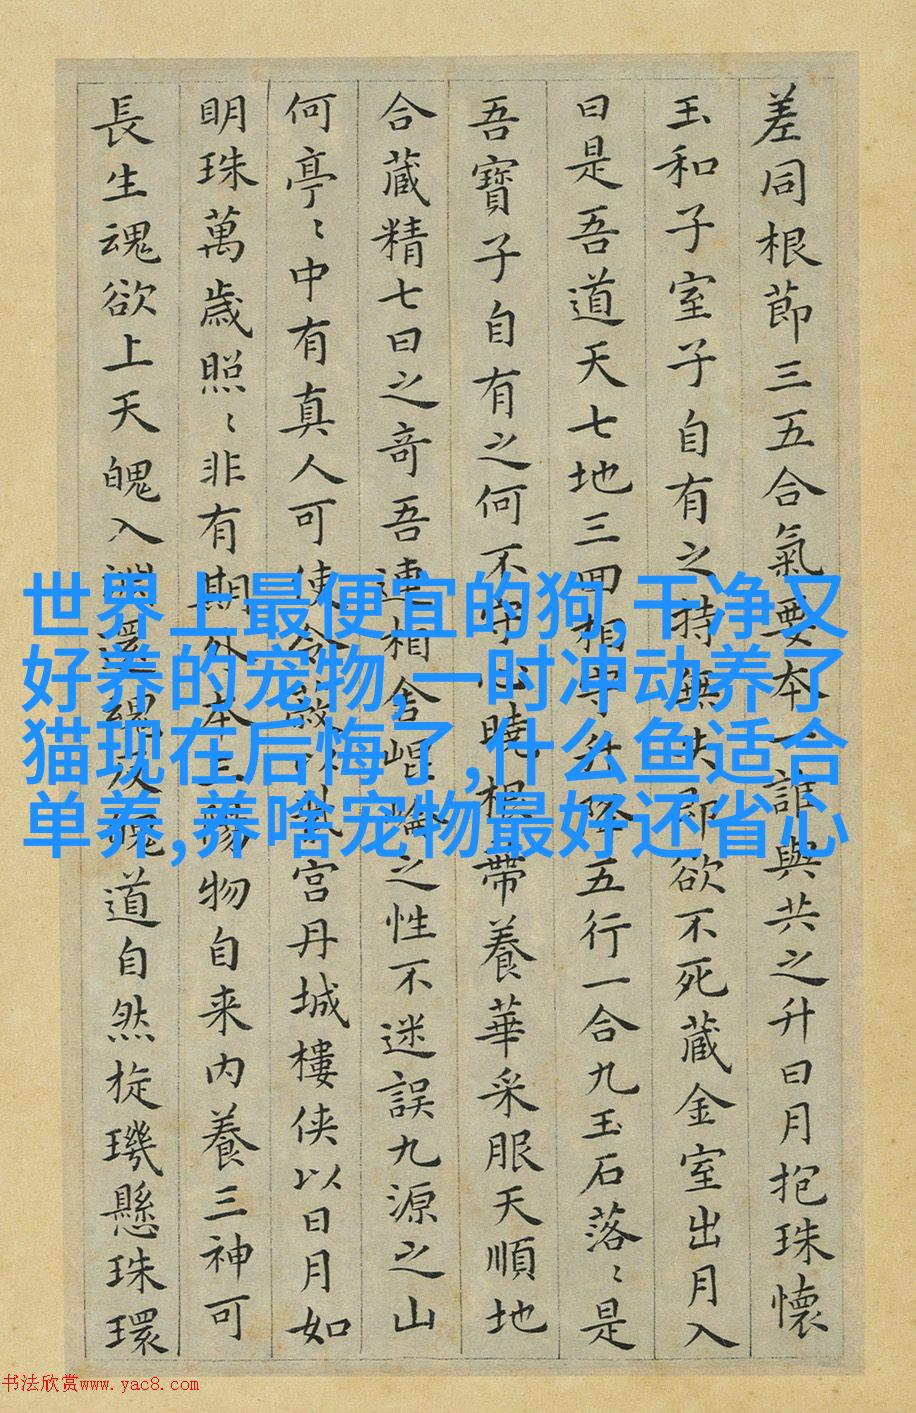 差同根節三五合氣要本一誰與共之升日月抱珠懷
玉和子室子自有之持無失即欲不死藏金室出月入
日是吾道天七地三回相守升降五行一合九玉石落〻是
吾寶子自有之何不守心曉根帶養華采服天順地
合藏精七日之奇吾連相舍崐崘之性不迷誤九源之山
何亭〻中有真人可使令宮丹城樓侠以日月如
明珠萬歲照〻非有期外本三陽物自来内養三神可
長生魂欲上天魄入淵還魂反魄道自然旋璣懸珠環
世界上最便宜的狗,干净又
好养的宠物,一时冲动养了
猫现在后悔了,什么鱼适合
单养,养啥宠物最好还省心
书法欣赏www.yac8.com